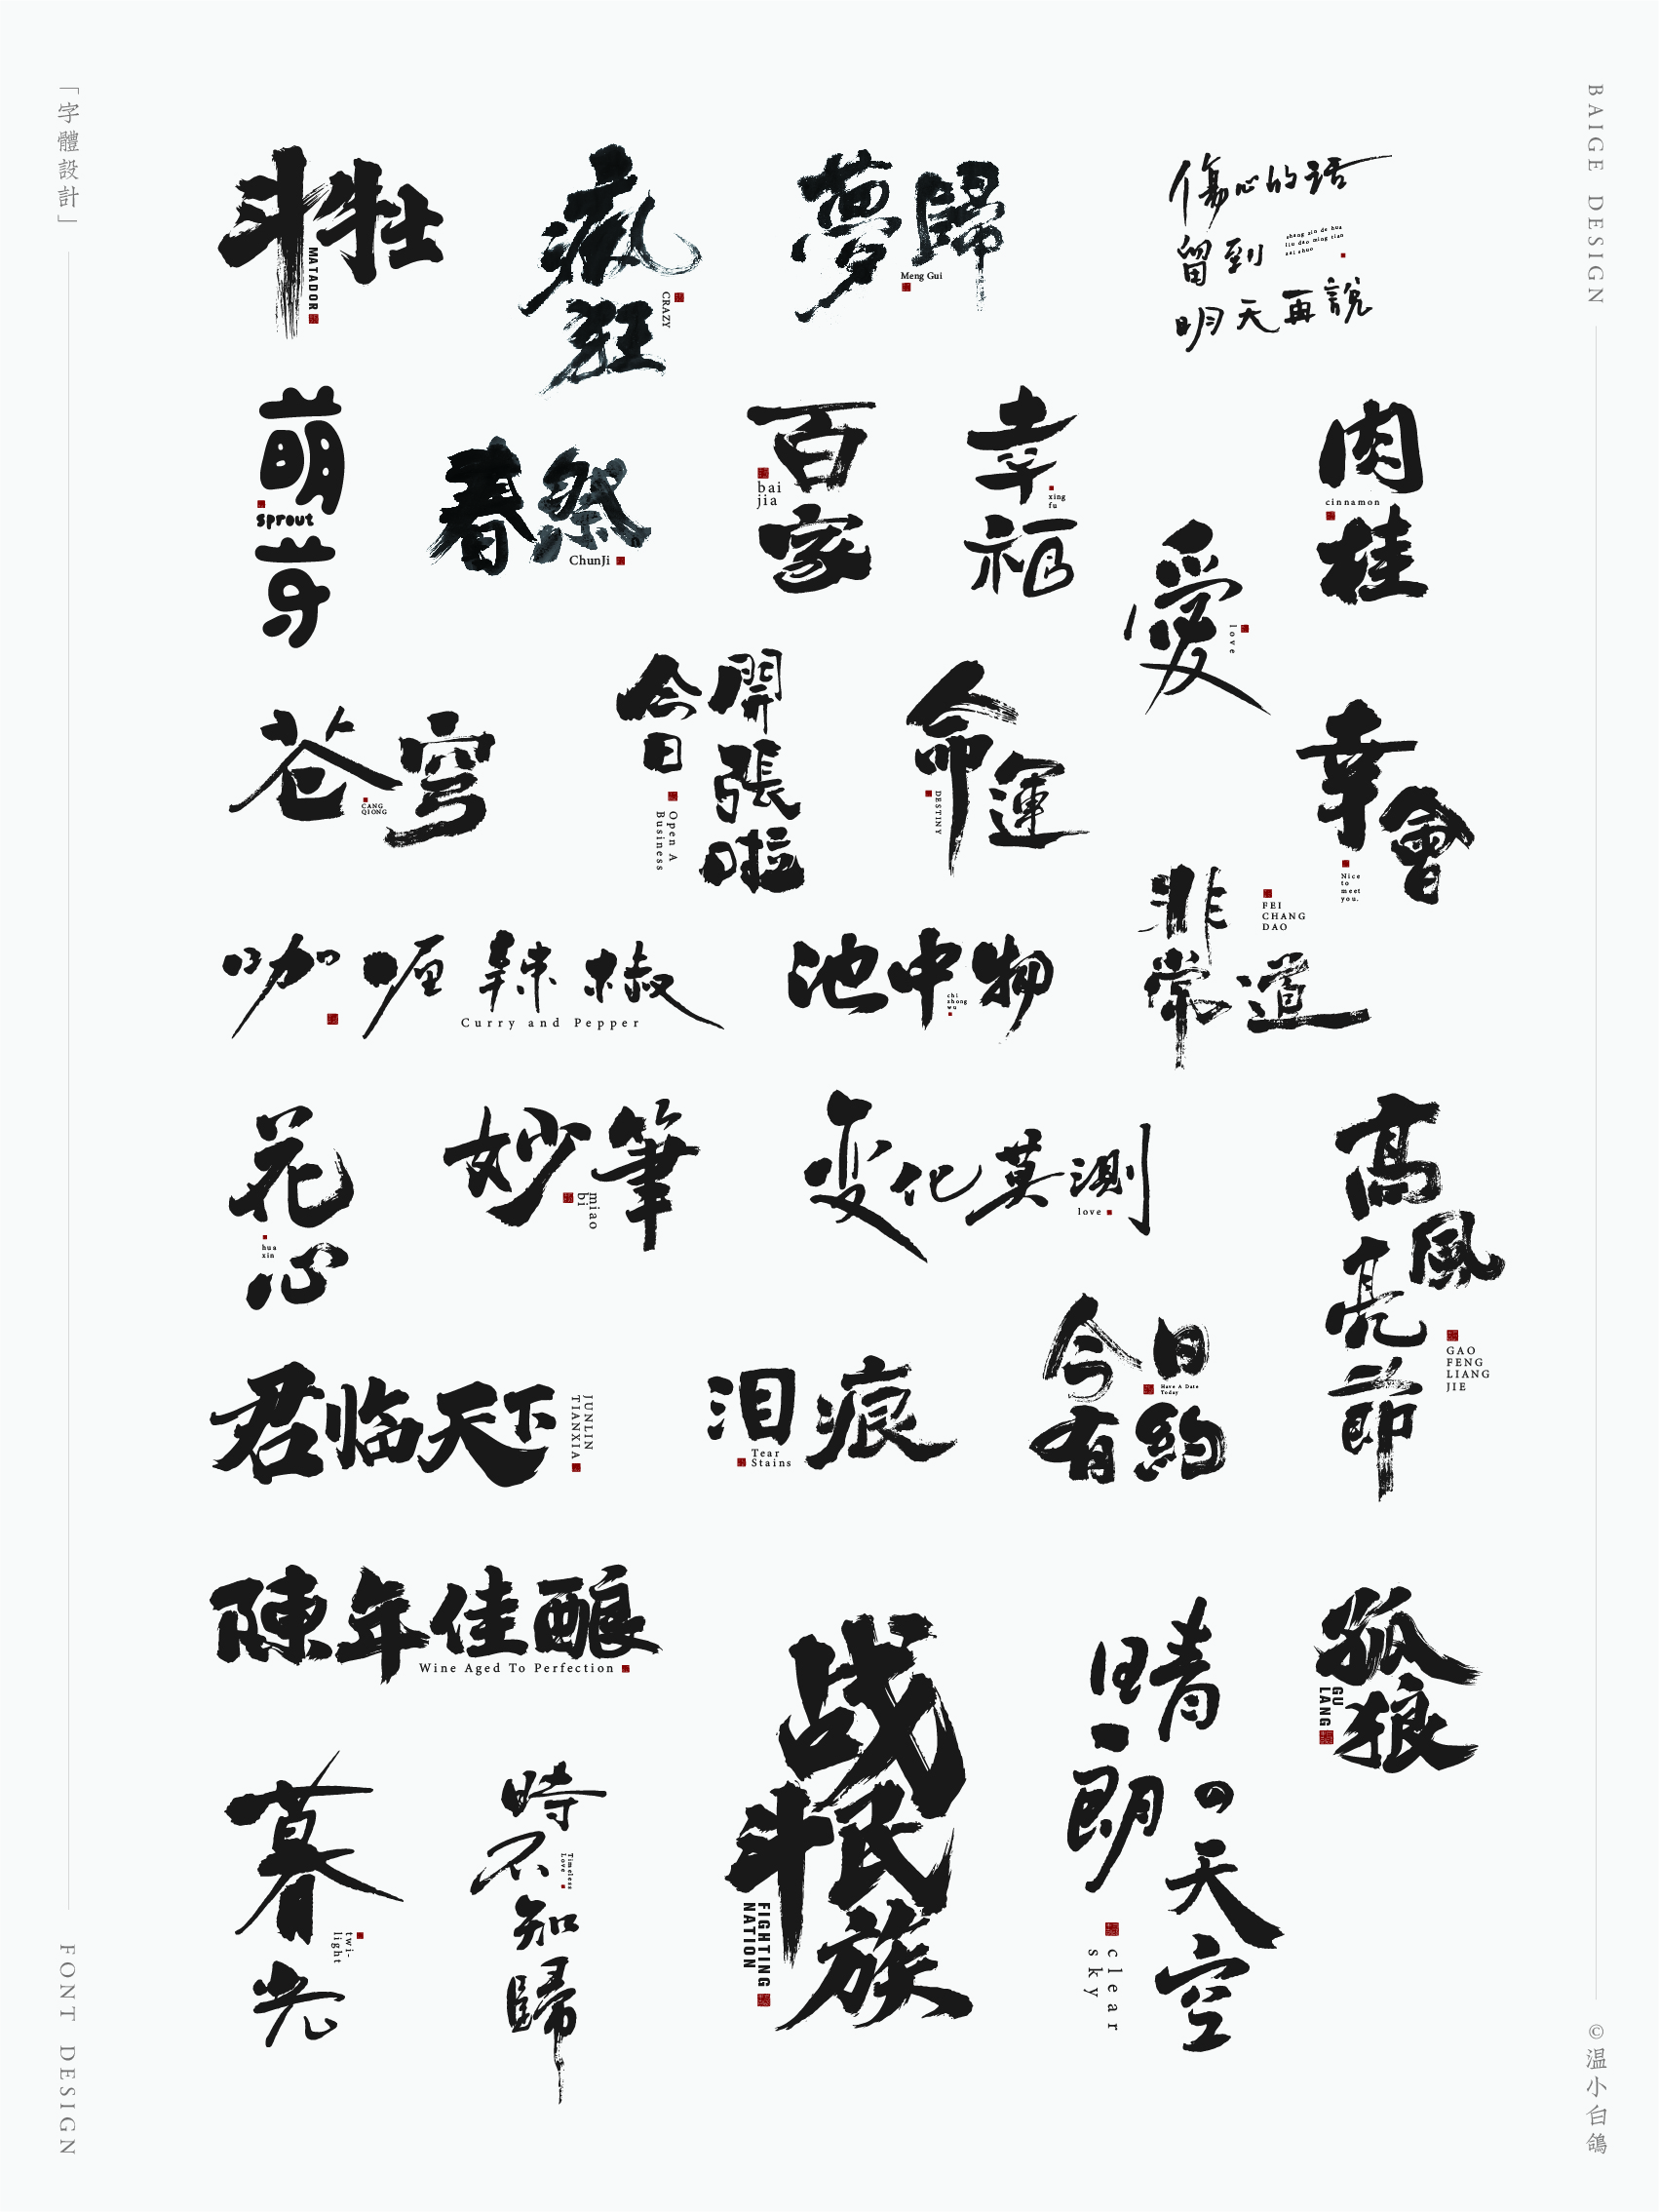 「字體設計」
BAIGE DESIGN
斗牡
MATADOR
瘋狂
CRAZY
夢歸
Meng Gui
傷心的话
留到
明天再說
shang xin de hua
liu dao ming tian
zai shuo
萌芽
sprout
春祭
ChunJi
百家
bai
jia
幸福
xing
fu
愛
love
肉桂
cinnamon
苍穹
CANG
QIONG
今日
開張啦
Open A
Business
命運
DESTINY
幸會
Nice
to
meet
you.
咖喱辣椒
Curry and Pepper
池中物
chi
zhong
wu
非常道
FEI
CHANG
DAO
花心
hua
xin
妙筆
miao
bi
变化莫測
love
高風亮節
GAO
FENG
LIANG
JIE
君临天下
JUNLIN
TIANXIA
泪痕
Tear
Stains
今日有約
Have A Date
Today
陳年佳酿
Wine Aged To Perfection
战斗民族
FIGHTING
NATION
晴朗の天空
clear
sky
孤狼
GU
LANG
暮光
twi-
light
時不知歸
Timeless
Love
FONT DESIGN
©温小白鴿